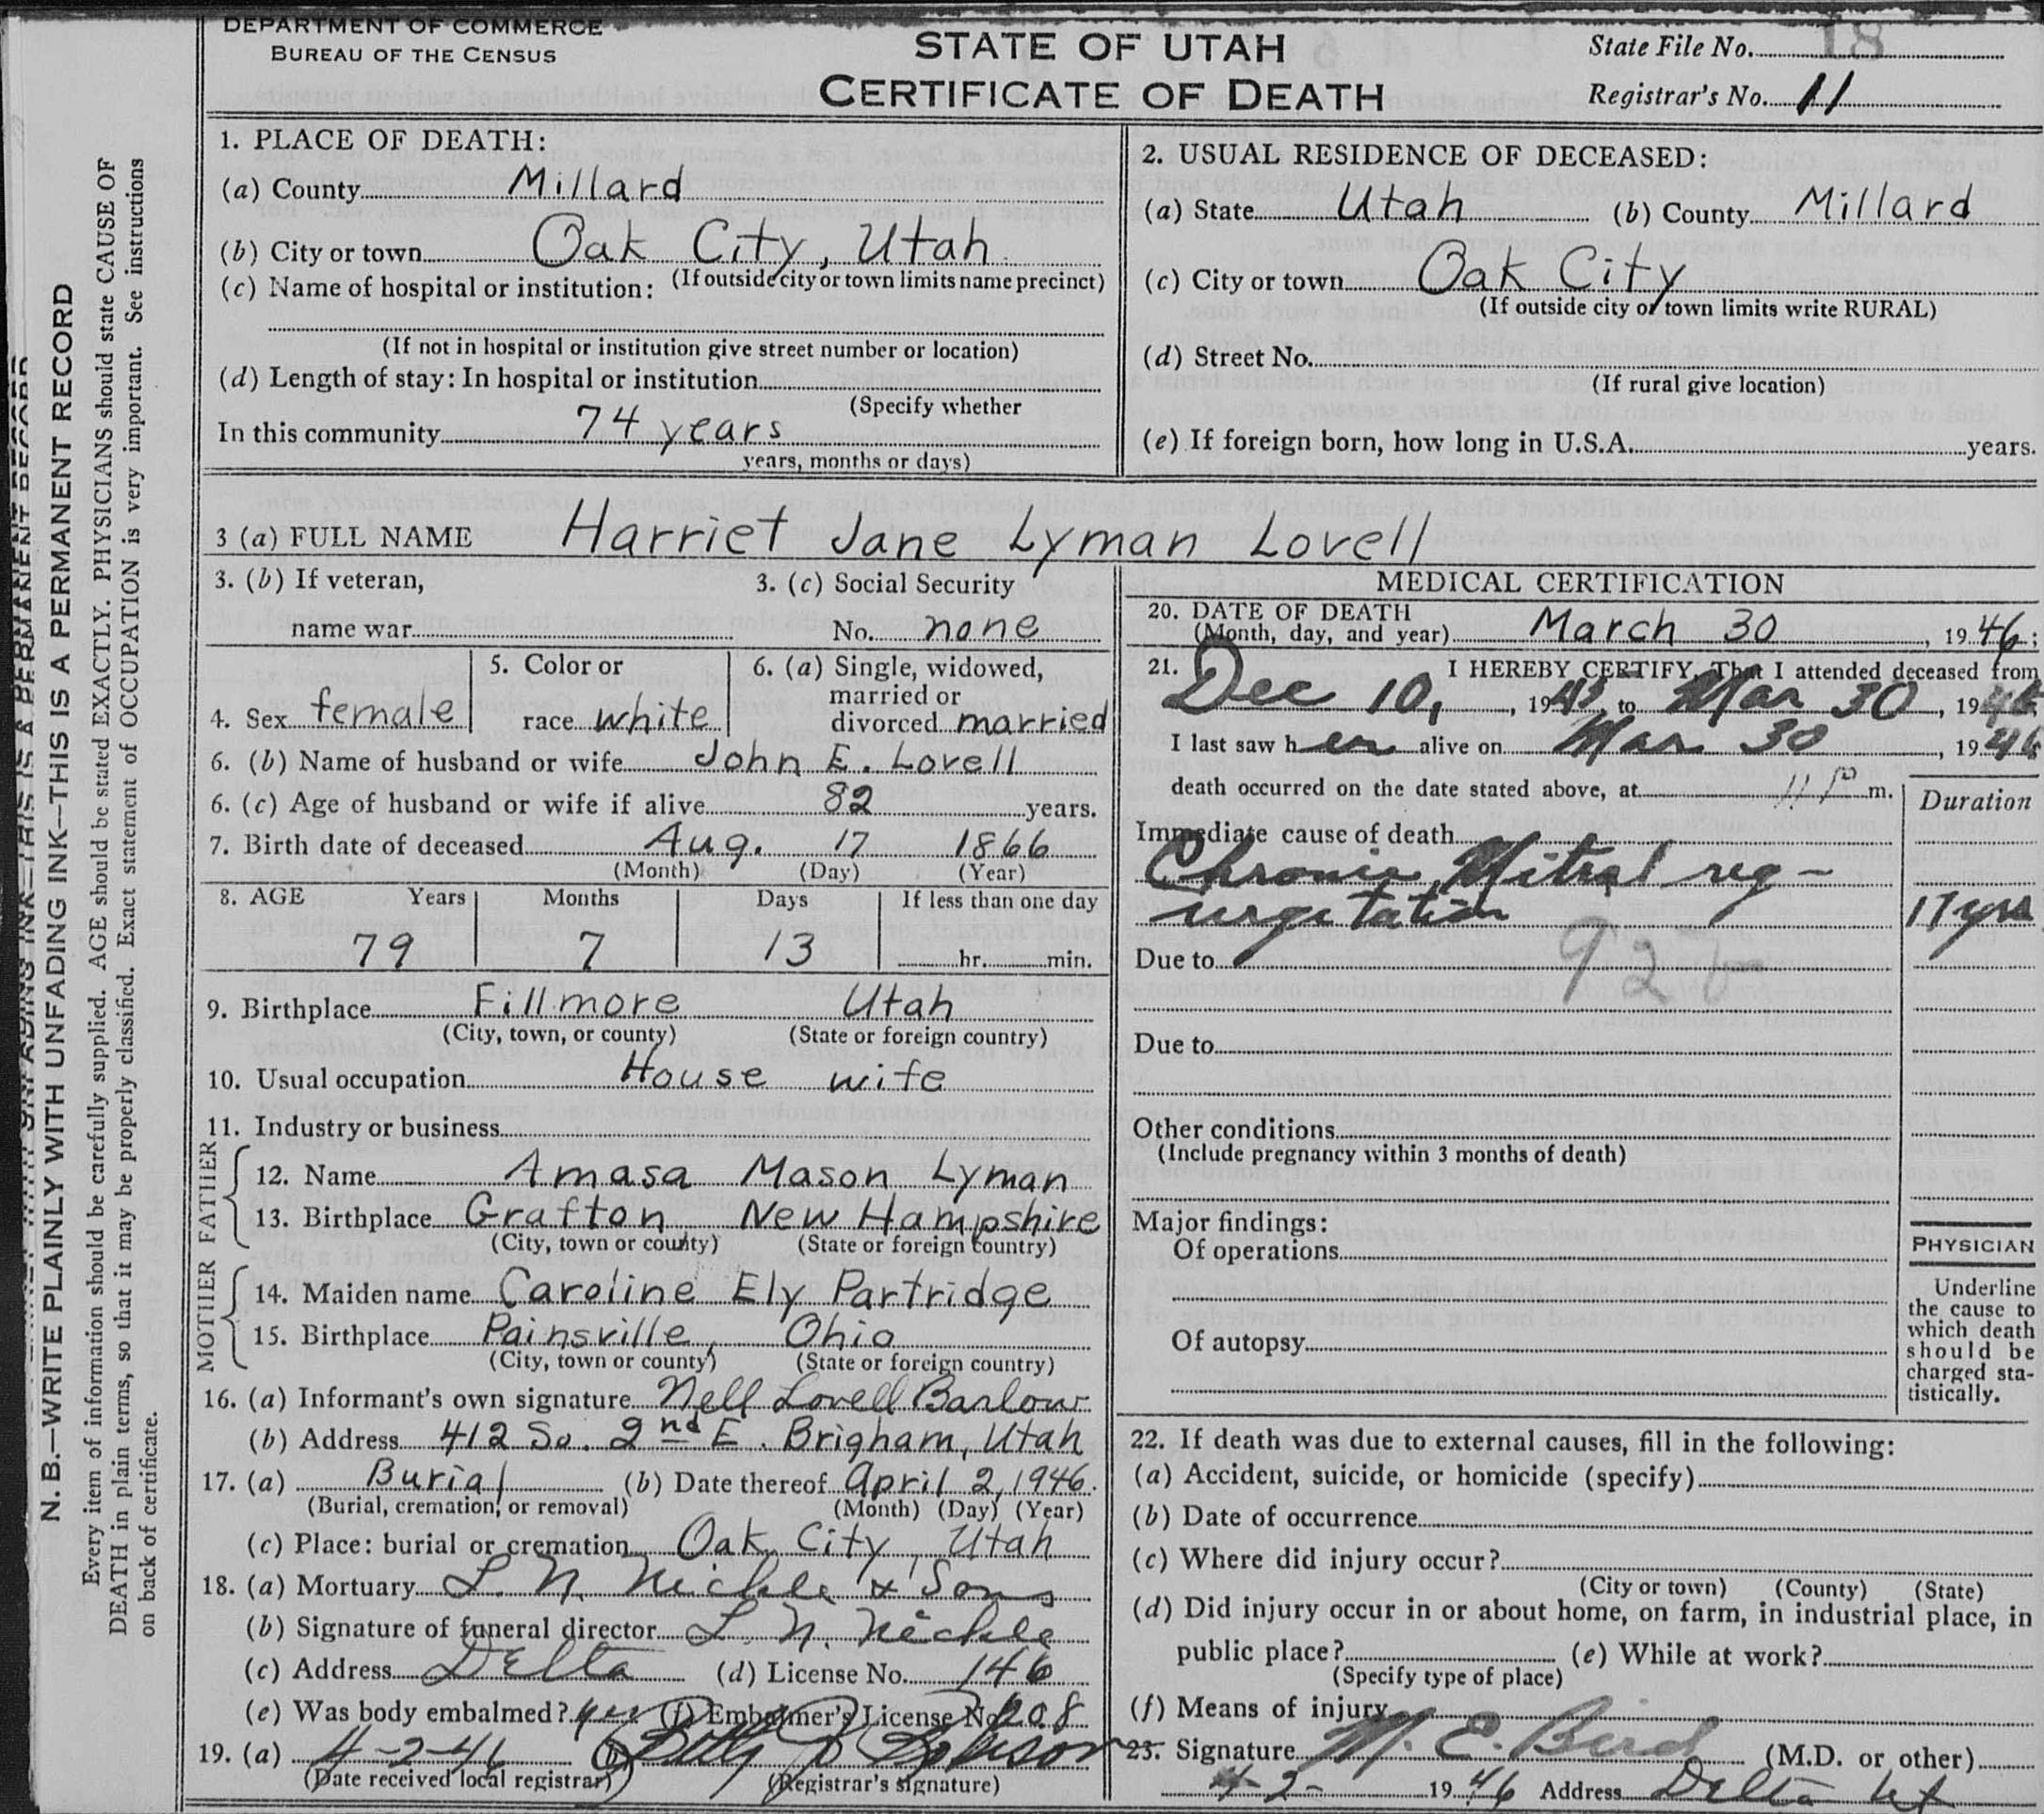 DEPARTMENT OF COMMERCE
BUREAU OF THE CENSUS
STATE OF UTAH
CERTIFICATE OF DEATH
State File No. 18
Registrar's No. 11
N. B.—WRITE PLAINLY WITH UNFADING INK—THIS IS A PERMANENT RECORD
Every item of information should be carefully supplied. AGE should be stated EXACTLY. PHYSICIANS should state CAUSE OF
DEATH in plain terms, so that it may be properly classified. Exact statement of OCCUPATION is very important. See instructions
on back of certificate.
1. PLACE OF DEATH:
(a) County Millard
(b) City or town Oak City, Utah
(If outside city or town limits name precinct)
(c) Name of hospital or institution:
(If not in hospital or institution give street number or location)
(d) Length of stay: In hospital or institution
(Specify whether
In this community 74 years
years, months or days)
2. USUAL RESIDENCE OF DECEASED:
(a) State Utah (b) County Millard
(c) City or town Oak City
(If outside city or town limits write RURAL)
(d) Street No.
(If rural give location)
(e) If foreign born, how long in U.S.A. years.
3 (a) FULL NAME Harriet Jane Lyman Lovell
3. (b) If veteran,
name war
3. (c) Social Security
No. none
4. Sex female
5. Color or
race white
6. (a) Single, widowed,
married or
divorced married
6. (b) Name of husband or wife John E. Lovell
6. (c) Age of husband or wife if alive 82 years.
7. Birth date of deceased Aug. 17 1866
(Month) (Day) (Year)
8. AGE Years Months Days If less than one day
79 7 13 hr. min.
9. Birthplace Fillmore Utah
(City, town, or county) (State or foreign country)
10. Usual occupation House wife
11. Industry or business
FATHER
12. Name Amasa Mason Lyman
13. Birthplace Grafton New Hampshire
(City, town or county) (State or foreign country)
MOTHER
14. Maiden name Caroline Ely Partridge
15. Birthplace Painsville, Ohio
(City, town or county) (State or foreign country)
16. (a) Informant's own signature Nell Lovell Barlow
(b) Address 412 So. 2nd E. Brigham, Utah
17. (a) Burial (b) Date thereof April 2, 1946.
(Burial, cremation, or removal) (Month) (Day) (Year)
(c) Place: burial or cremation Oak City, Utah
18. (a) Mortuary L. N. Nickle & Sons
(b) Signature of funeral director L. N. Nickle
(c) Address Delta (d) License No. 146
(e) Was body embalmed? yes (f) Embalmer's License No. 208
19. (a) 4-2-46 (b)
(Date received local registrar) (Registrar's signature)
MEDICAL CERTIFICATION
20. DATE OF DEATH
(Month, day, and year) March 30, 1946;
21. I HEREBY CERTIFY, That I attended deceased from
Dec 10, 1945, to Mar 30, 1946;
I last saw her alive on Mar 30, 1946
death occurred on the date stated above, at 11 P m.
Duration
Immediate cause of death
Chronic Mitral reg-
urgetation 17 yrs
Due to
Due to
Other conditions
(Include pregnancy within 3 months of death)
Major findings:
Of operations
Of autopsy
PHYSICIAN
Underline
the cause to
which death
should be
charged sta-
tistically.
22. If death was due to external causes, fill in the following:
(a) Accident, suicide, or homicide (specify)
(b) Date of occurrence
(c) Where did injury occur?
(City or town) (County) (State)
(d) Did injury occur in or about home, on farm, in industrial place, in
public place? (e) While at work?
(Specify type of place)
(f) Means of injury
23. Signature M. E. Bird (M.D. or other)
4-2- 1946 Address Delta Ut